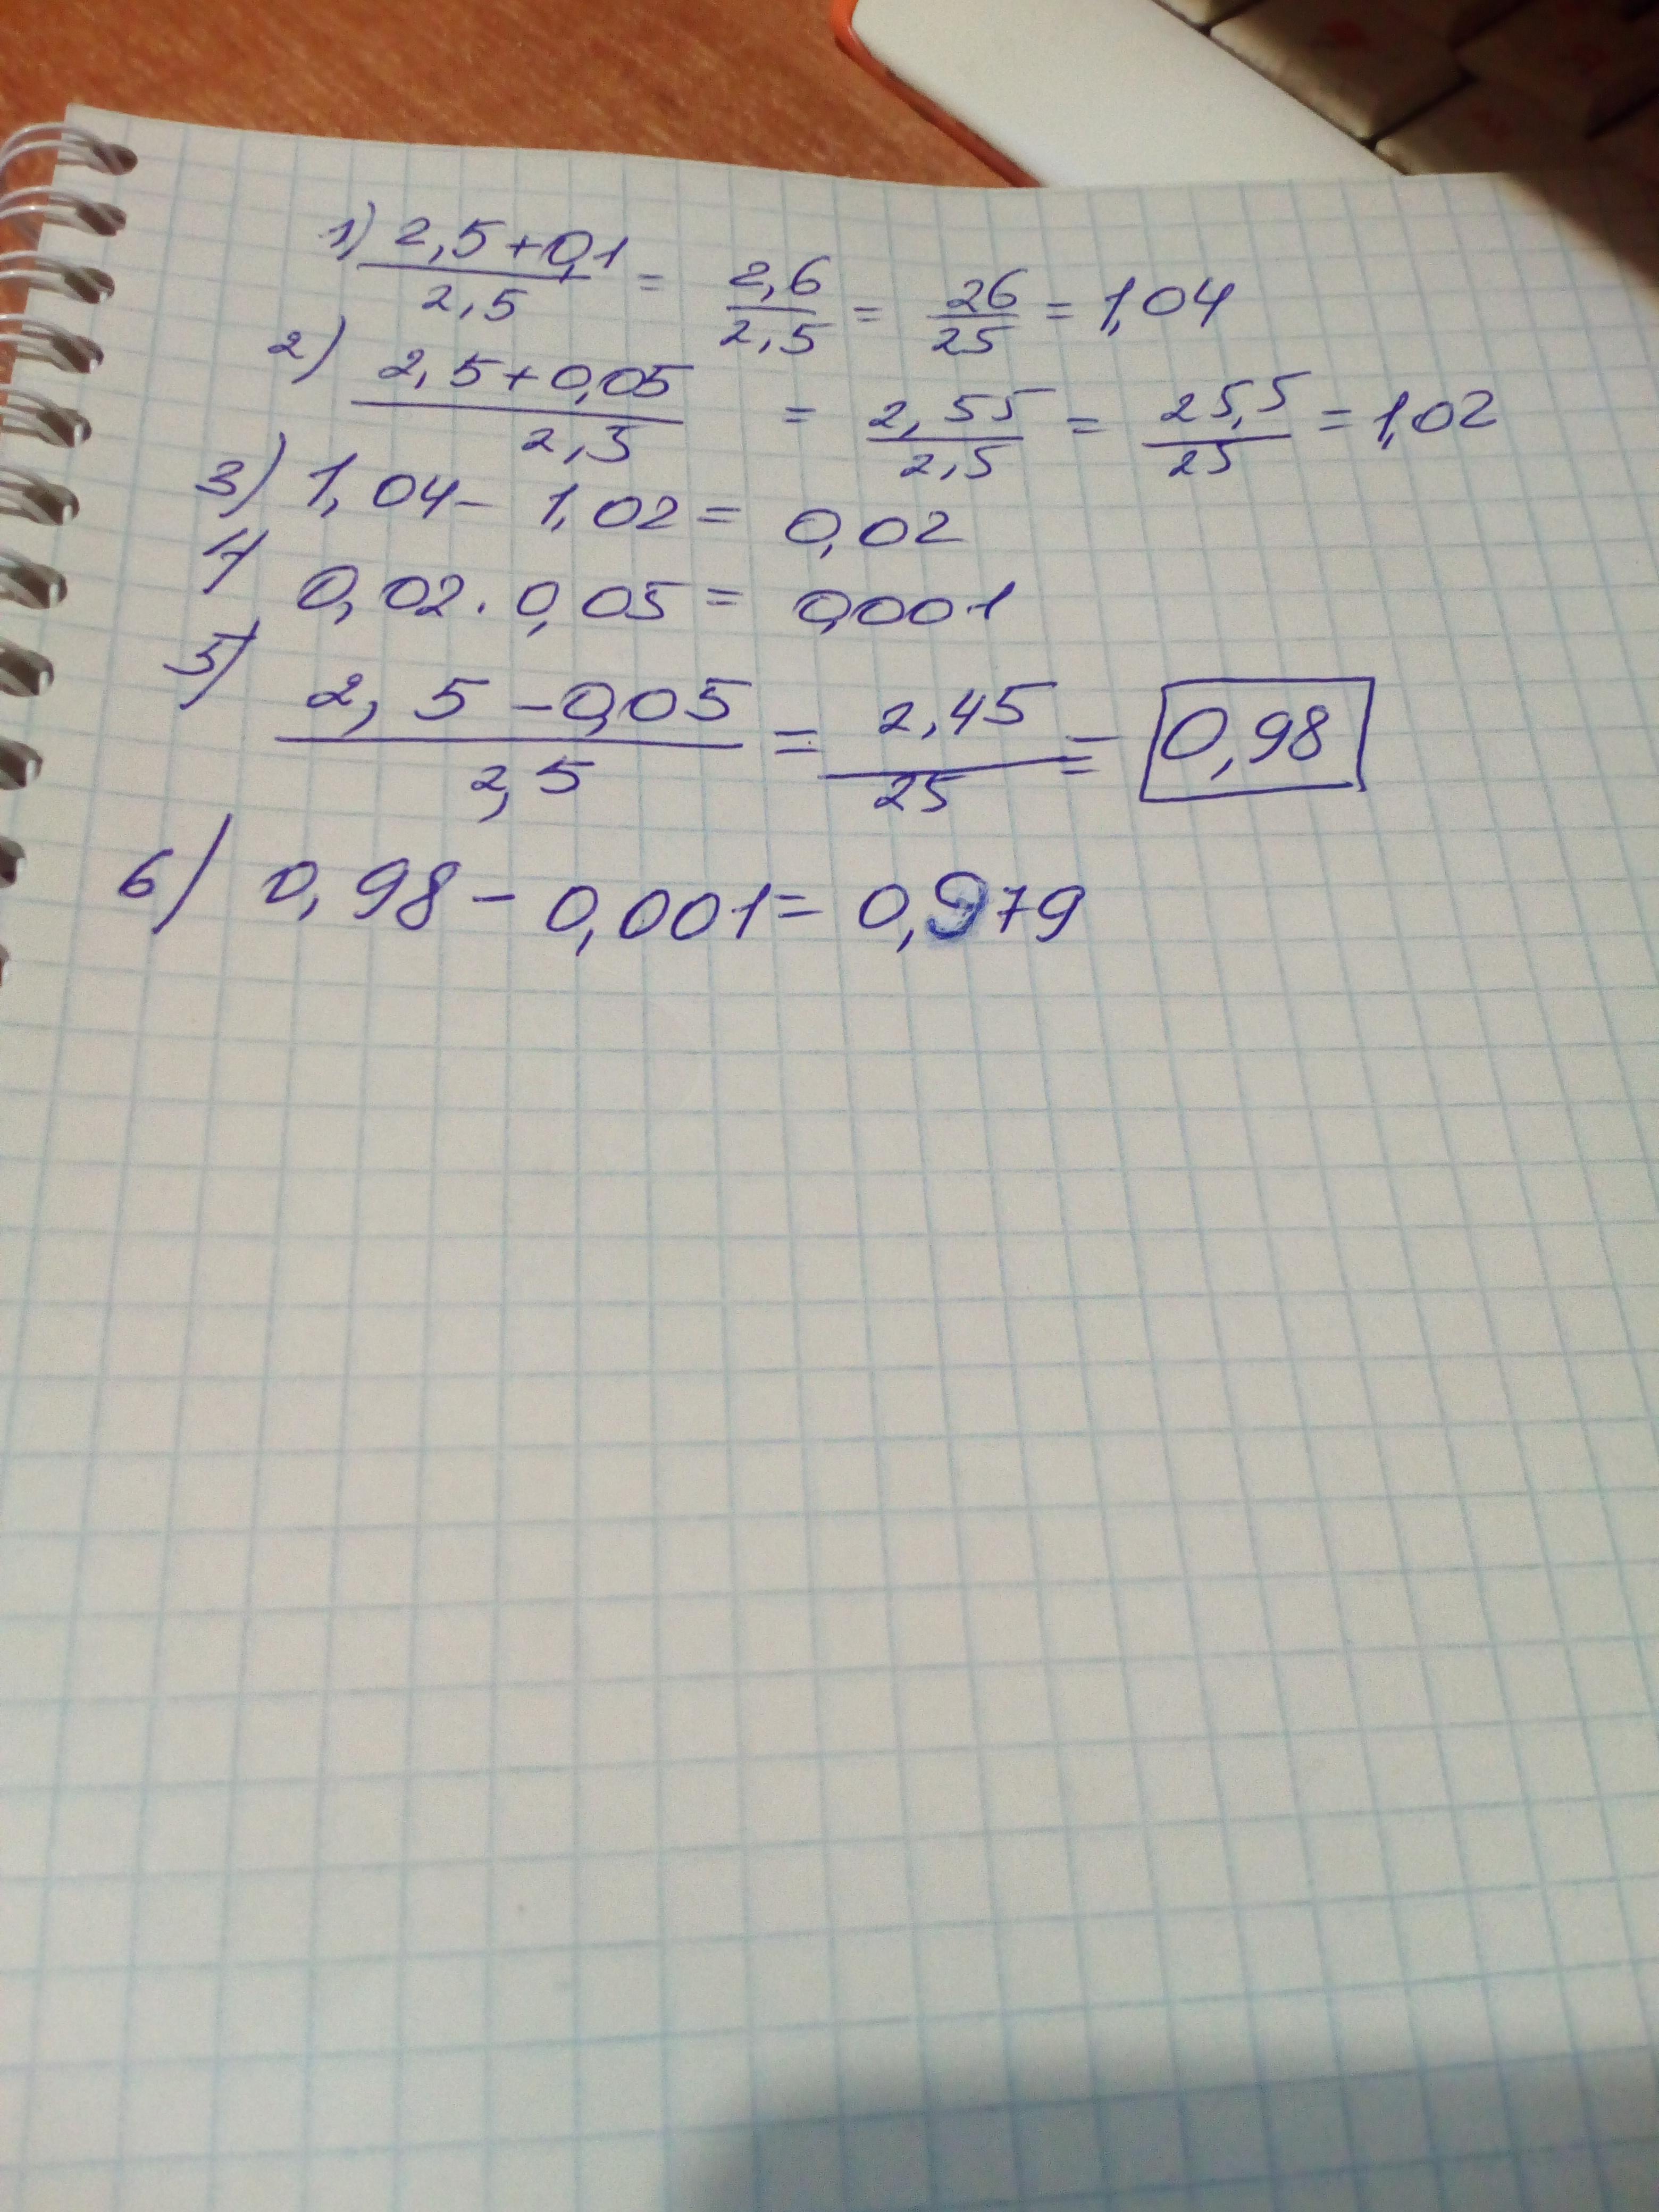 1) (2,5+0,1)/2,5 = 2,6/2,5 = 26/25 = 1,04
2) (2,5+0,05)/2,5 = 2,55/2,5 = 25,5/25 = 1,02
3) 1,04 - 1,02 = 0,02
4) 0,02 . 0,05 = 0,001
5) (2,5 - 0,05)/2,5 = 2,45/25 = 0,98
6) 0,98 - 0,001 = 0,979